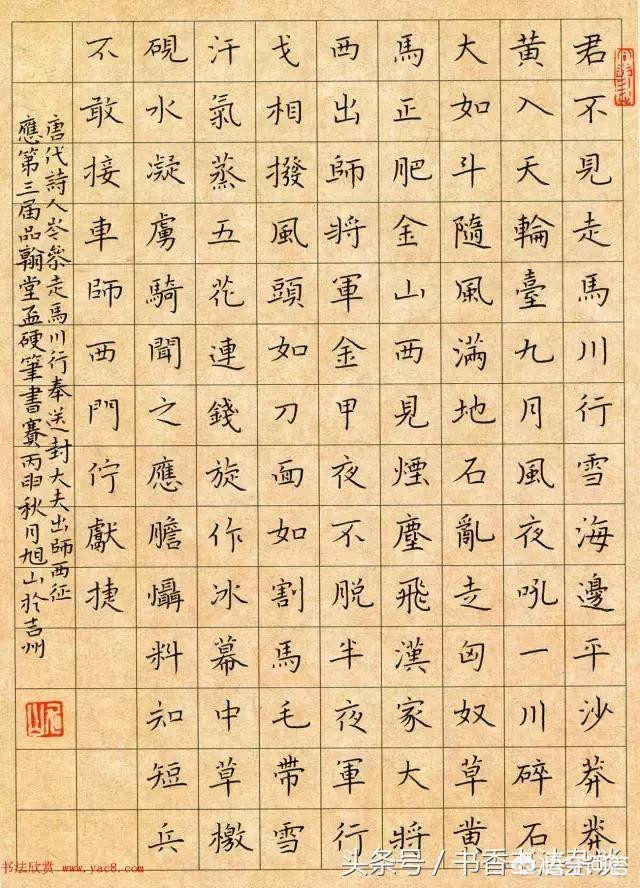 君不見走馬川行雪海邊平沙莽莽
黃入天輪臺九月風夜吼一川碎石
大如斗隨風滿地石亂走匈奴草黃
馬正肥金山西見煙塵飛漢家大將
西出師將軍金甲夜不脫半夜軍行
戈相撥風頭如刀面如割馬毛帶雪
汗氣蒸五花連錢旋作冰幕中草檄
硯水凝虜騎聞之應膽懾料知短兵
不敢接車師西門佇獻捷
唐代詩人岑參走馬川行奉送封大夫出師西征
應第三届品翰堂盃硬筆書賽丙申秋月旭山於吉州
书法欣赏 www.yac8.com
头条号 / 书香